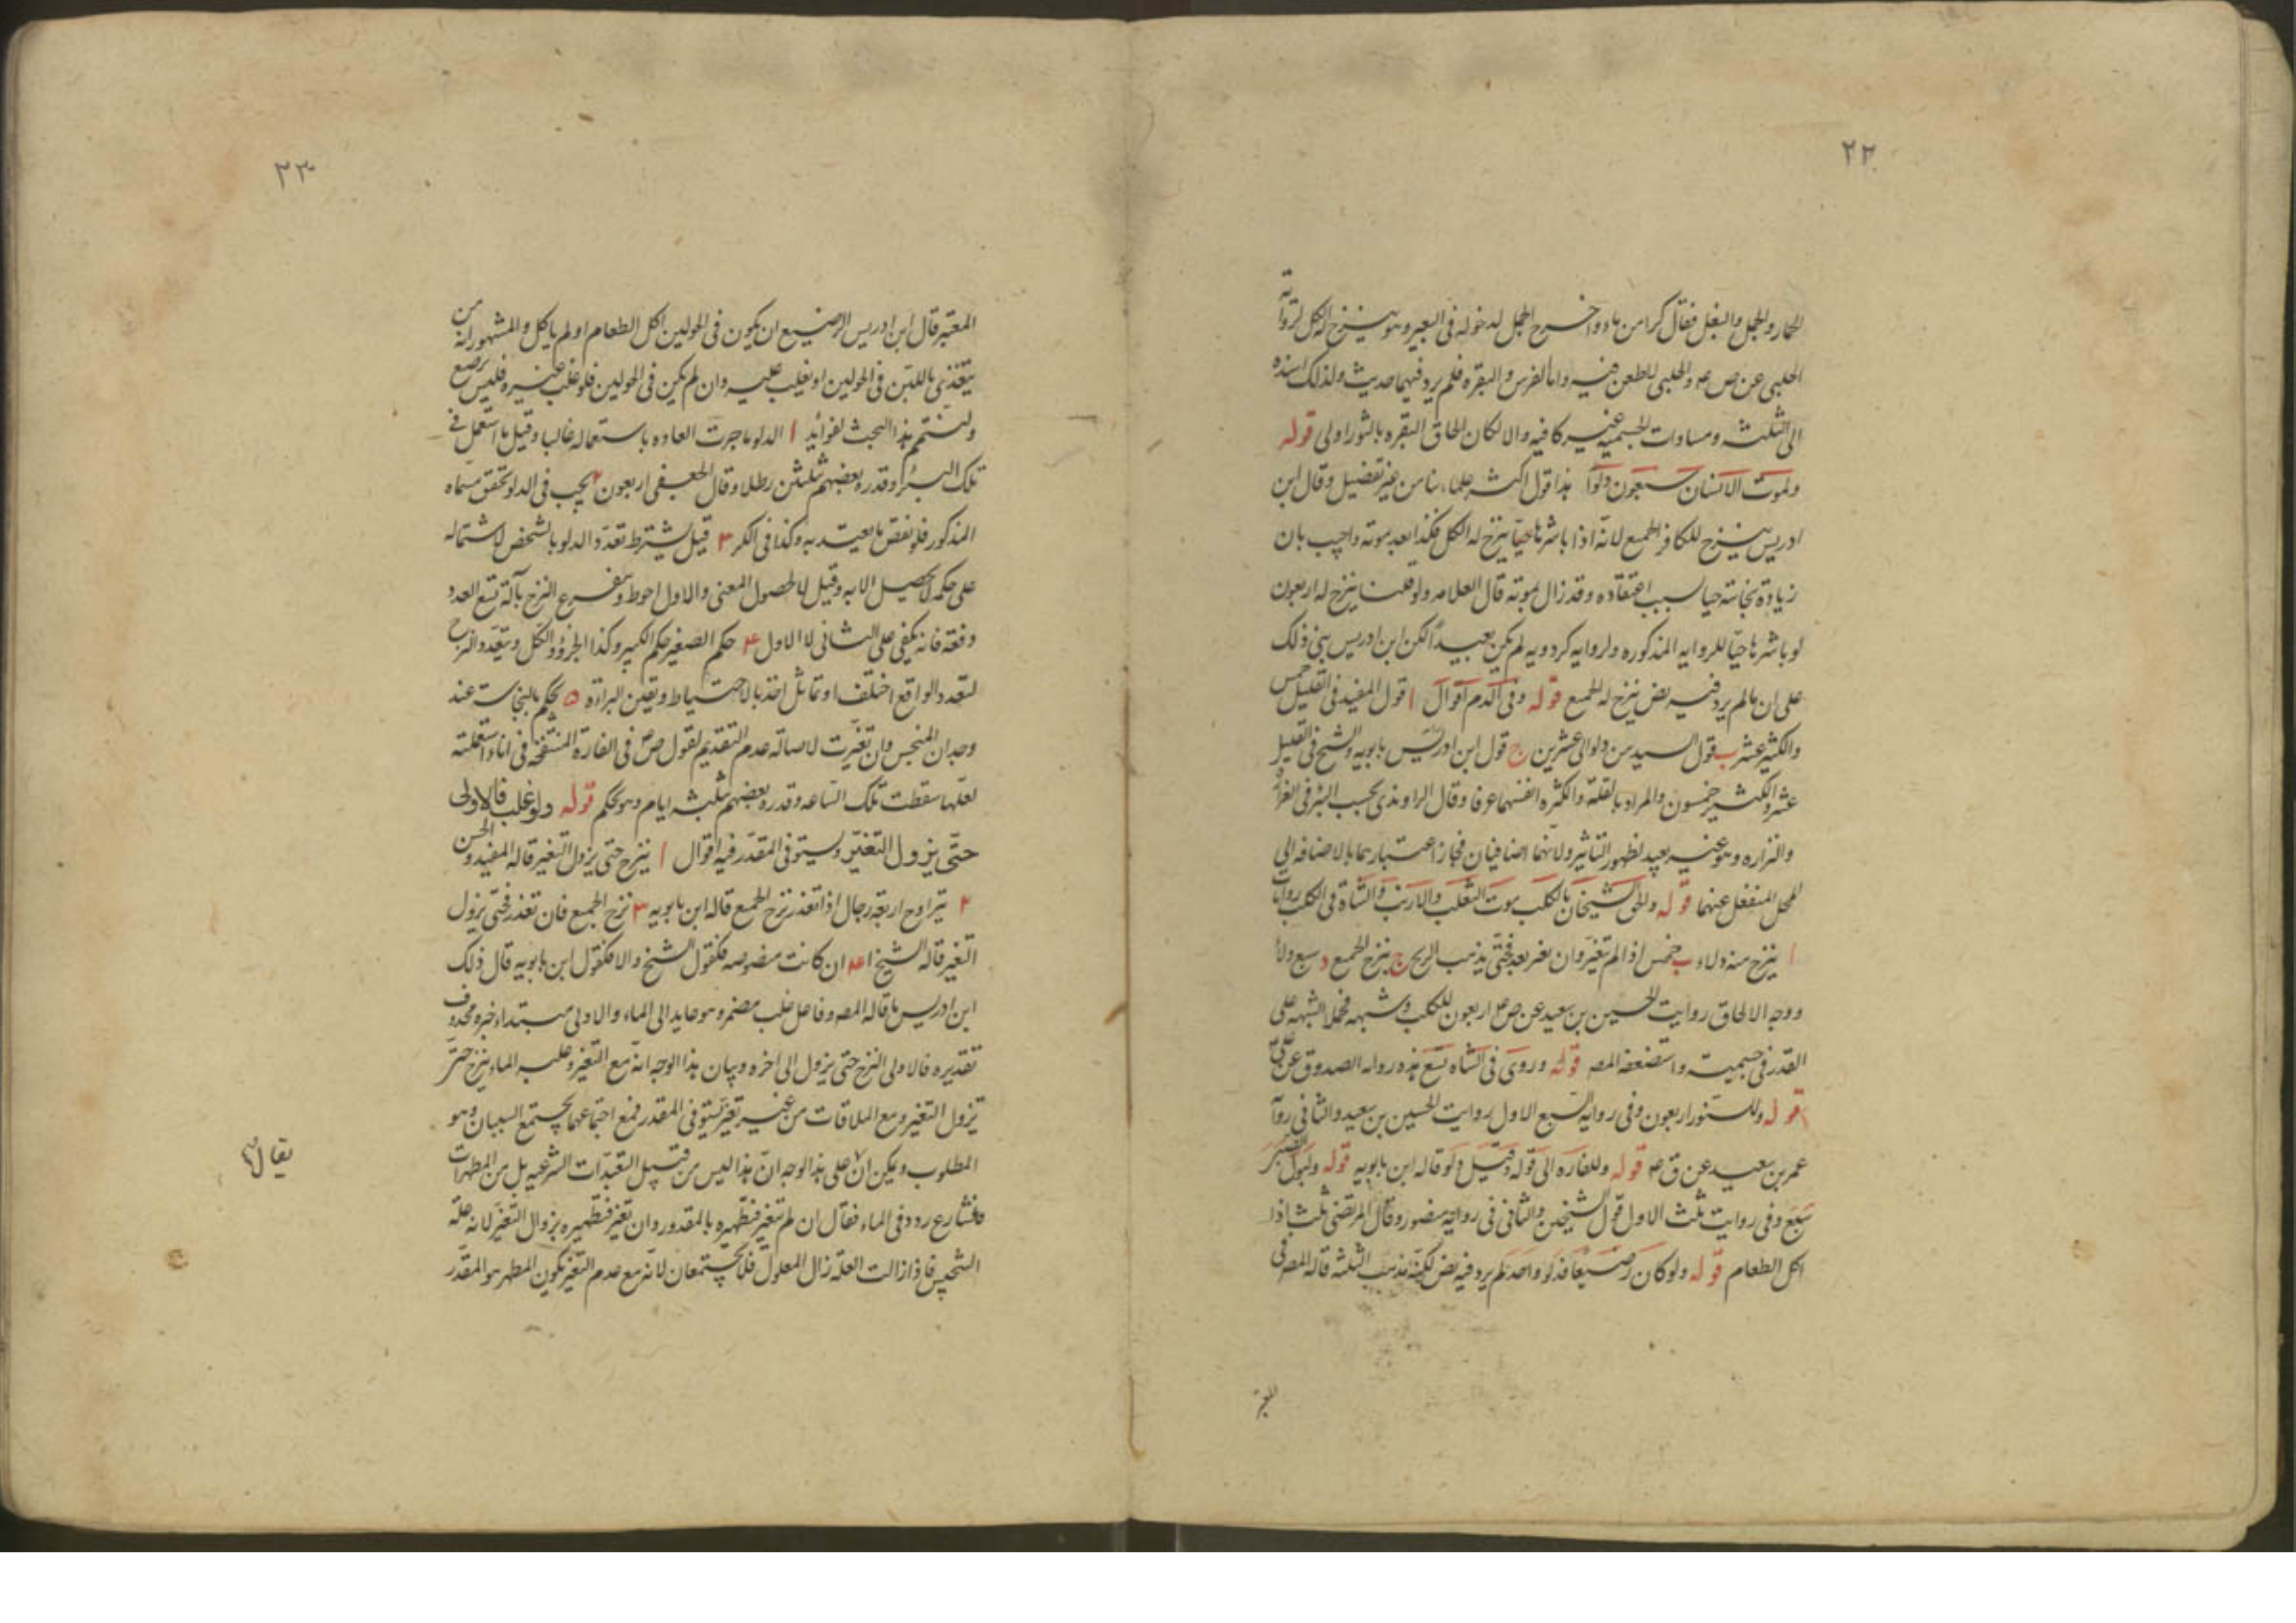 ٢٢
الحمار والجمل والبغل فقال كر من ماء واخرج الجمل لدخوله فى البعير وهو ينزح له الكل لرواية
الحلبى عن ص ع والحلبى لا طعن فيه واما الفرس والبقره فلم يرد فيهما حديث ولذلك اسنده
الى الثلثه ومساوات الجسميه غير كافيه والا لكان الحاق البقره بالثور اولى قوله
ولموت الانسان سبعون دلوا هذا قول اكثر علمائنا من غير تفصيل وقال ابن
ادريس ينزح للكافر الجميع لانه اذا باشرها حيا ينزح له الكل فكذا بعد موته واجيب بان
زيادة نجاسته حيا بسبب اعتقاده وقد زال بموته قال العلامه ولو قلنا ينزح له اربعون
لو باشرها حيا للروايه المذكوره ولروايه كردويه لم يكن بعيدا لكن ابن ادريس بنى ذلك
على ان ما لم يرد فيه نص ينزح له الجميع قوله وفى الدم اقوال ا قول المفيد فى القليل خمس
والكثير عشر ب قول السيد من دلو الى عشرين ج قول ابن ادريس بابويه والشيخ فى القليل
عشر والكثير خمسون والمراد بالقلة والكثره انفسهما عرفا وقال الراوندى بحسب البئر فى الغزاره
والنزاره وهو غير بعيد لظهور التاثير ولانهما اضافيان فجاز اعتبارهما بالاضافه الى
المحل المنفعل عنهما قوله والحق الشيخان بالكلب موت الثعلب والارنب والشاة فى الكلب روايات
ا ينزح منه دلاء ب خمس اذا لم تتغير وان تغير بعد فحتى يذهب الريح ج ينزح الجميع د سبع دلاء
ووجه الالحاق روايت الحسين بن سعيد عن ص ع اربعون للكلب وشبهه فحملا الشبه على
القدر فى جسميته واستضعفه المصه قوله وروى فى الشاه تسع هذه رواه الصدوق عن على
قوله وللسنور اربعون وفى روايه السبع الاول روايت الحسين بن سعيد والثانى رواية
عمر بن سعيد عن ق ع قوله وللفاره الى قوله وقيل دلو قاله ابن بابويه قوله ولبول الصبى
سبع وفى روايت ثلث الاول قول الشيخين والثانى فى روايه منصور وقال المرتضى ثلث اذا
اكل الطعام قوله ولو كان رضيعا فدلو واحد لم يرد فيه نص لكنه مذهب الثلثه قاله المصه فى
المعتبر
٢٣
المعتبر قال ابن ادريس الرضيع ان يكون فى الحولين اكل الطعام او لم ياكل والمشهور انه من
يتغذى باللبن فى الحولين او يغلب عليه وان لم يكن فى الحولين فلو غلب غيره فليس برضيع
ولنختم هذا البحث لفوائد ا الدلو ما جرت العاده باستعماله غالبا وقيل ما استعمل فى
تلك البئر وقدره بعضهم ثلثين رطلا وقال الجعفى اربعون ٢ يجب فى الدلو تحقق مسماه
المذكور فلو نقص ما يعتد به وكذا فى الكر ٣ قيل يشترط تعدد الدلو بالشخص لاشتماله
على حكمه لا يحصيل الا به وقيل لا لحصول المعنى والاول احوط ويتفرع النزح بآلة تسع العدد
دفعة فانه يكفى على الثانى لا الاول ۴ حكم الصغير حكم الكبير وكذا الجزء والكل ويتعدد النزح
لتعدد الواقع اختلف او تماثل اخذ بالاحتياط ويقين البراءة ۵ يحكم بالنجاسة عند
وجدان المنجس وان تغيرت لاصاله عدم التقديم لقول ص ع فى الفارة المنتفخة فى اناء استعملته
لعلها سقطت تلك الساعه وقدره بعضهم ثلثه ايام وهو تحكم قوله ولو غلب فالاولى
حتى يزول التغير ويستوفى المقدر فيه اقوال ا ينزح حتى يزول التغير قاله المفيد والحسن
٢ يتراوح اربعة رجال اذا تعذر نزح الجميع قاله ابن بابويه ٣ نزح الجميع فان تعذر فحتى يزول
التغير قاله الشيخ ۴ ان كانت منصوصه فكقول الشيخ والا فكقول ابن بابويه قال ذلك
ابن ادريس ما قاله المصه وفاعل غلب مضمر وهو عايد الى الماء والاولى مبتداء خبره محذوف
تقديره فالاولى النزح حتى يزول الى اخره وبيان هذا الوجه انه مع التغير وغلب الماء ينزح حتى
يزول التغير ومع الملاقات من غير تغير يستوفى المقدر فمع اجتماعهما يجتمع السببان وهو
المطلوب ويمكن ان على هذا الوجه ان هذا ليس من قبيل التعبدات الشرعيه بل من المطهرات
فالشارع ردد فى الماء فقال ان لم تتغير فتطهره بالمقدور وان تغير فتطهيره بزوال التغير لانه علة
التنجيس فاذا زالت العلة زال المعلول فلا يجتمعان لانه مع عدم التغير يكون المطهر هو المقدر
يقال